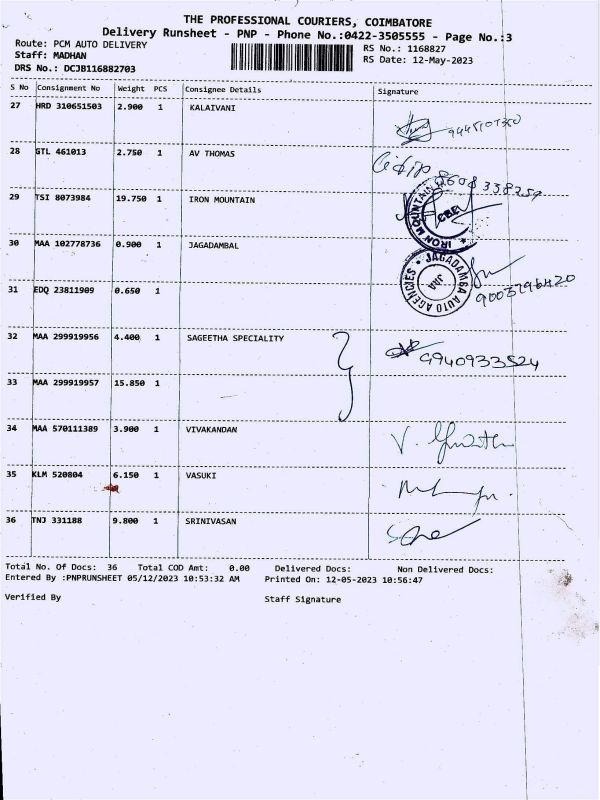 THE PROFESSIONAL COURIERS, COIMBATORE
Delivery Runsheet - PNP - Phone No.:0422-3505555 - Page No.:3
Route: PCM AUTO DELIVERY RS No.: 1168827
Staff: MADHAN RS Date: 12-May-2023
DRS No.: DCJB116882703
S No Consignment No Weight PCS Consignee Details Signature
27 HRD 310651503 2.900 1 KALAIVANI
28 GTL 461013 2.750 1 AV THOMAS
8608338259
29 TSI 8073984 19.750 1 IRON MOUNTAIN
IRON MOUNTAIN CBE
30 MAA 102778736 0.900 1 JAGADAMBAL
JAGADAMBA AUTO AGENCIES
JAA
31 EDQ 23811909 0.650 1
9003796420
32 MAA 299919956 4.400 1 SAGEETHA SPECIALITY
9940933524
33 MAA 299919957 15.850 1
34 MAA 570111389 3.900 1 VIVAKANDAN
35 KLM 520804 6.150 1 VASUKI
36 TNJ 331188 9.800 1 SRINIVASAN
Total No. Of Docs: 36 Total COD Amt: 0.00 Delivered Docs: Non Delivered Docs:
Entered By :PNPRUNSHEET 05/12/2023 10:53:32 AM Printed On: 12-05-2023 10:56:47
Verified By Staff Signature